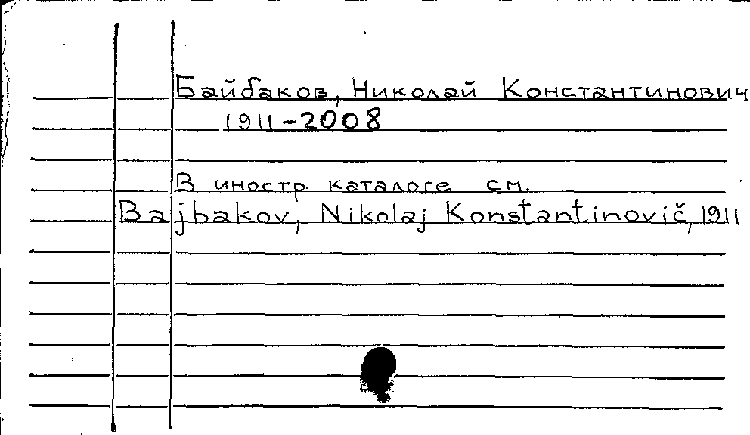 Байбаков, Николай Константинович
1911-2008
В иностр. каталоге см.
Bajbakov, Nikolaj Konstantinovič, 1911